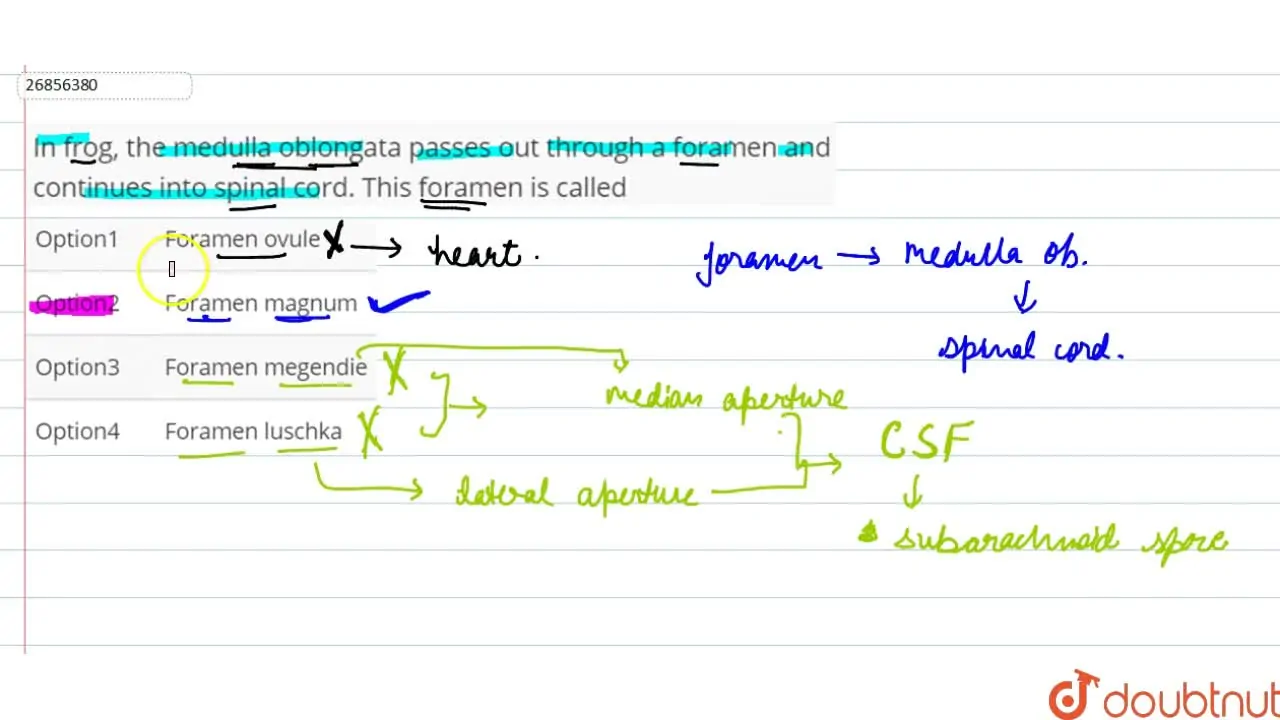 26856380
In frog, the medulla oblongata passes out through a foramen and
continues into spinal cord. This foramen is called
Option1 Foramen ovule X → heart.
foramen → medulla ob.
↓
spinal cord.
Option2 Foramen magnum ✓
Option3 Foramen megendie X
median aperture
Option4 Foramen luschka X
lateral aperture
CSF
↓
subarachnoid spore
doubtnut